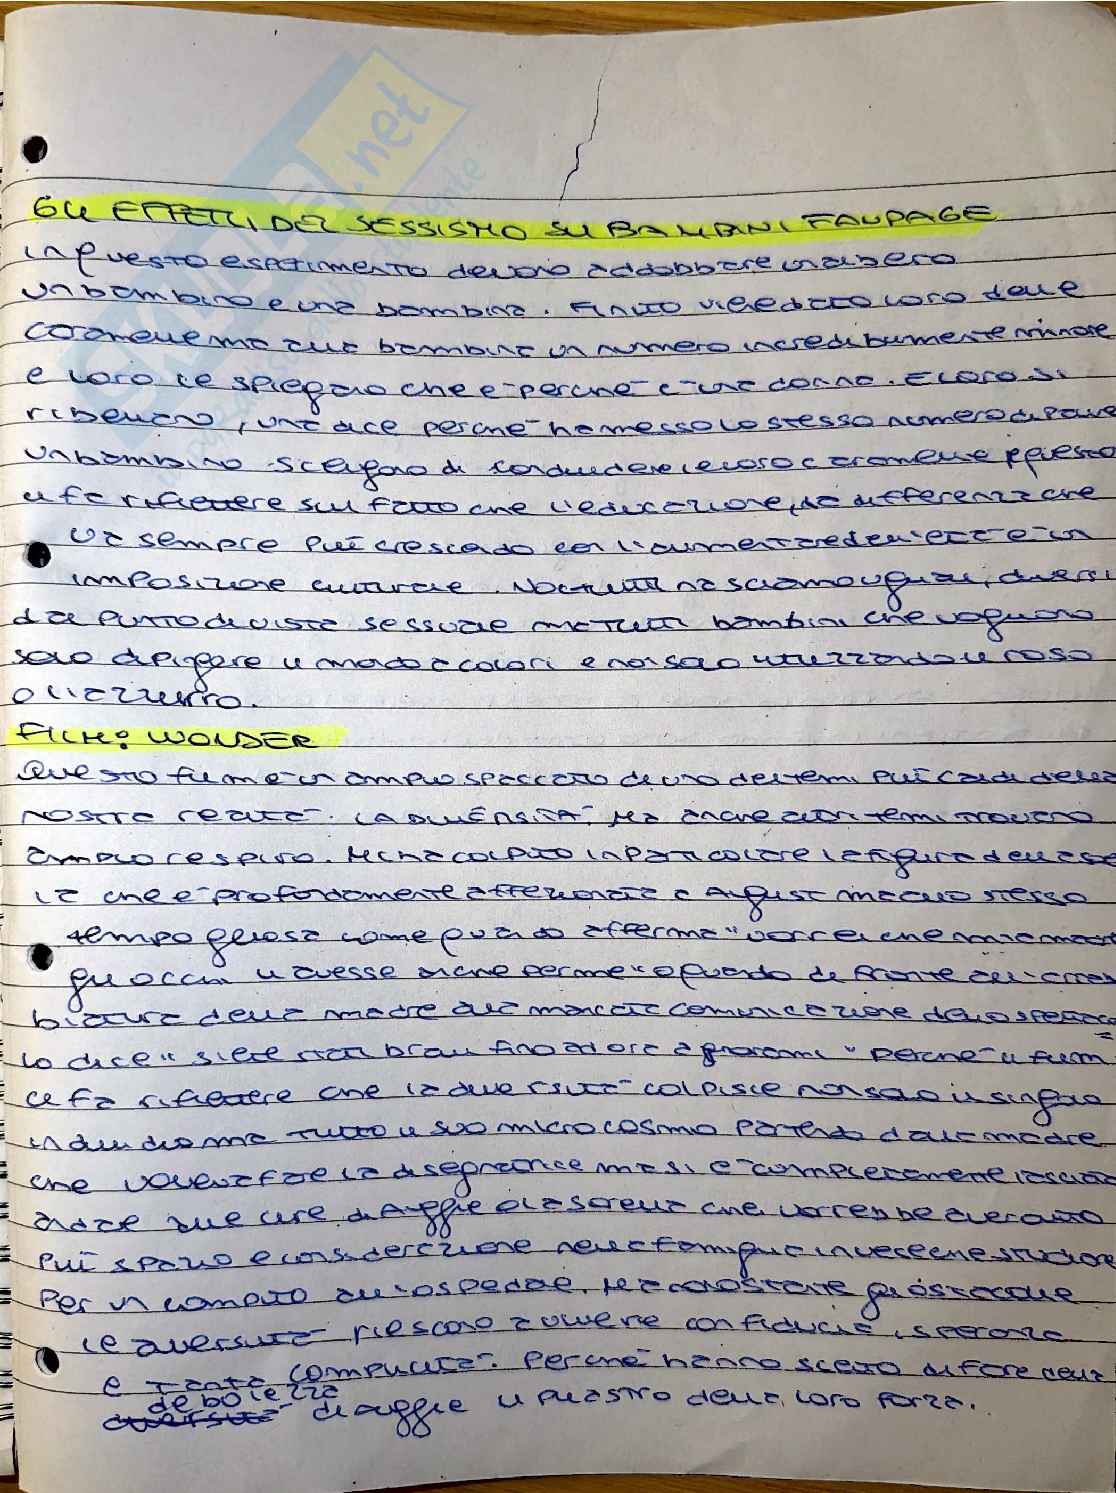 GLI EFFETTI DEL SESSISMO SU BAMBINI FANPAGE
in questo esperimento devono addobbare un albero
un bambino e una bambina. Finito viene dato loro delle
caramelle ma alla bambina un numero incredibilmente minore
e loro le spiegano che è perché è una donna. E loro si
ribellano, una dice perché ha messo lo stesso numero di palline
un bambino scelgono di condividere le loro caramelle e questo
ci fa riflettere sul fatto che l'educazione, la differenza che
va sempre più crescendo con l'aumentare dell'età è un
imposizione culturale. Noi tutti nasciamo uguali, diversi
dal punto di vista sessuale ma tutti bambini che vogliono
solo dipingere il mondo a colori e non solo utilizzando il rosa
o l'azzurro.
FILM: WONDER
Questo film è un ampio spaccato di uno dei temi più caldi della
nostra realtà. LA DIVERSITÀ, Ma anche altri temi trovano
ampio respiro. Mi ha colpito in particolare la figura della
la che è profondamente affezionata a August ma allo stesso
tempo gelosa come quando afferma "vorrei che mia madre
gli occhi li avesse anche per me" o quando di fronte all'
biatura della madre alla mancata comunicazione dello spettacolo
lo dice "siete stati bravi fino ad ora a ignorarmi" perché il film
ci fa riflettere che la diversità colpisce non solo il singolo
individuo ma tutto il suo microcosmo partendo dalla madre
che voleva fare la disegnatrice ma si è completamente lasciata
andare alle cure di Auggie o la sorella che vorrebbe avere
più spazio e considerazione nella famiglia invece che
Per un compito all'ospedale. Ma nonostante gli ostacoli e
le avversità riescono a vivere con fiducia, speranza
e tanta complicità. Perché hanno scelto di fare della
debolezza
diversità di auggie il pilastro della loro forza.